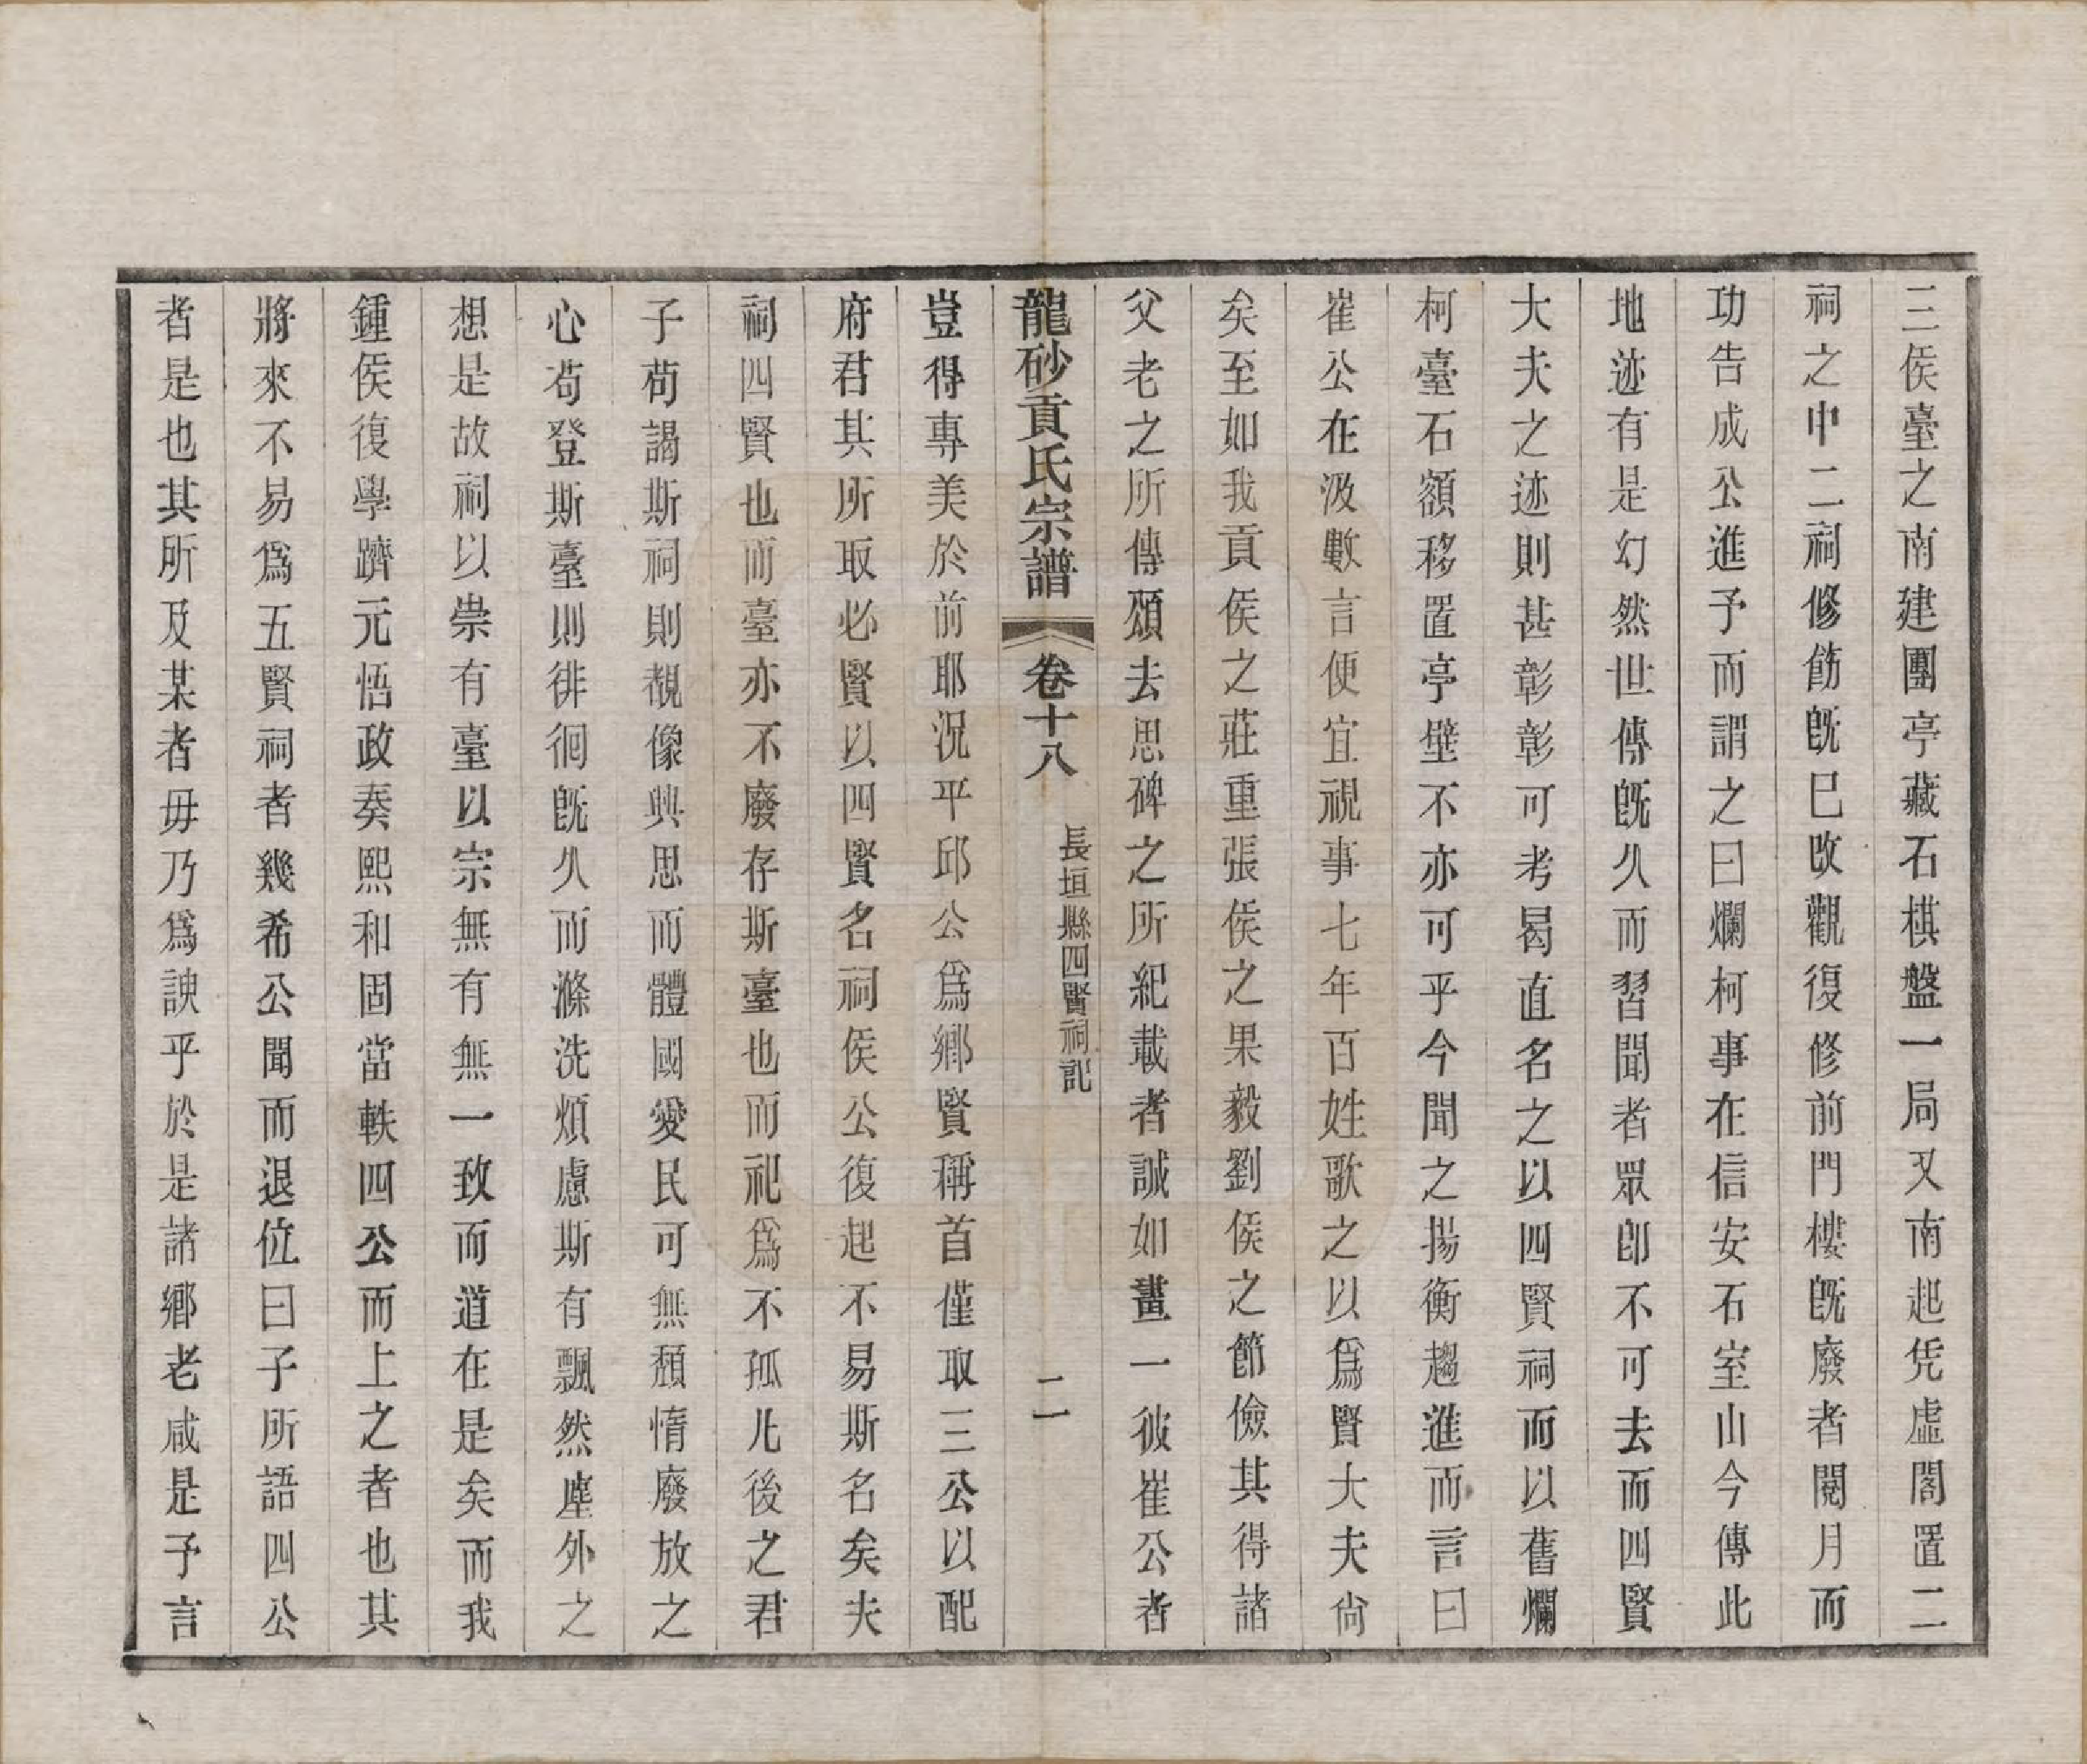 三侯臺之南建團亭藏石棋盤一局又南起凭虛閣置二
祠之中二祠修飭旣巳改觀復修前門樓旣廢者閱月而
功告成公進予而謂之曰爛柯事在信安石室山今傳此
地迹有是幻然世傳旣久而習聞者眾卽不可去而四賢
大夫之迹則甚彰彰可考曷直名之以四賢祠而以舊爛
柯臺石額移置亭壁不亦可乎今聞之揚衡趨進而言曰
崔公在汲數言便宜視事七年百姓歌之以爲賢大夫尙
矣至如我貢侯之莊重張侯之果毅劉侯之節儉其得諸
父老之所傳頌去思碑之所紀載者誠如畫一彼崔公者
龍砂貢氏宗譜 卷十八 長垣縣四賢祠記 二
豈得專美於前耶況平邱公爲鄉賢稱首僅取三公以配
府君其所取必賢以四賢名祠侯公復起不易斯名矣夫
祠四賢也而臺亦不廢存斯臺也而祀爲不孤凡後之君
子苟謁斯祠則覩像興思而體國愛民可無頹惰廢放之
心苟登斯臺則徘徊旣久而滌洗煩慮斯有飄然塵外之
想是故祠以崇有臺以宗無有無一致而道在是矣而我
鍾侯復學躋元悟政奏熙和固當軼四公而上之者也其
將來不易爲五賢祠者幾希公聞而退位曰子所語四公
者是也其所及某者毋乃爲諛乎於是諸鄉老咸是予言